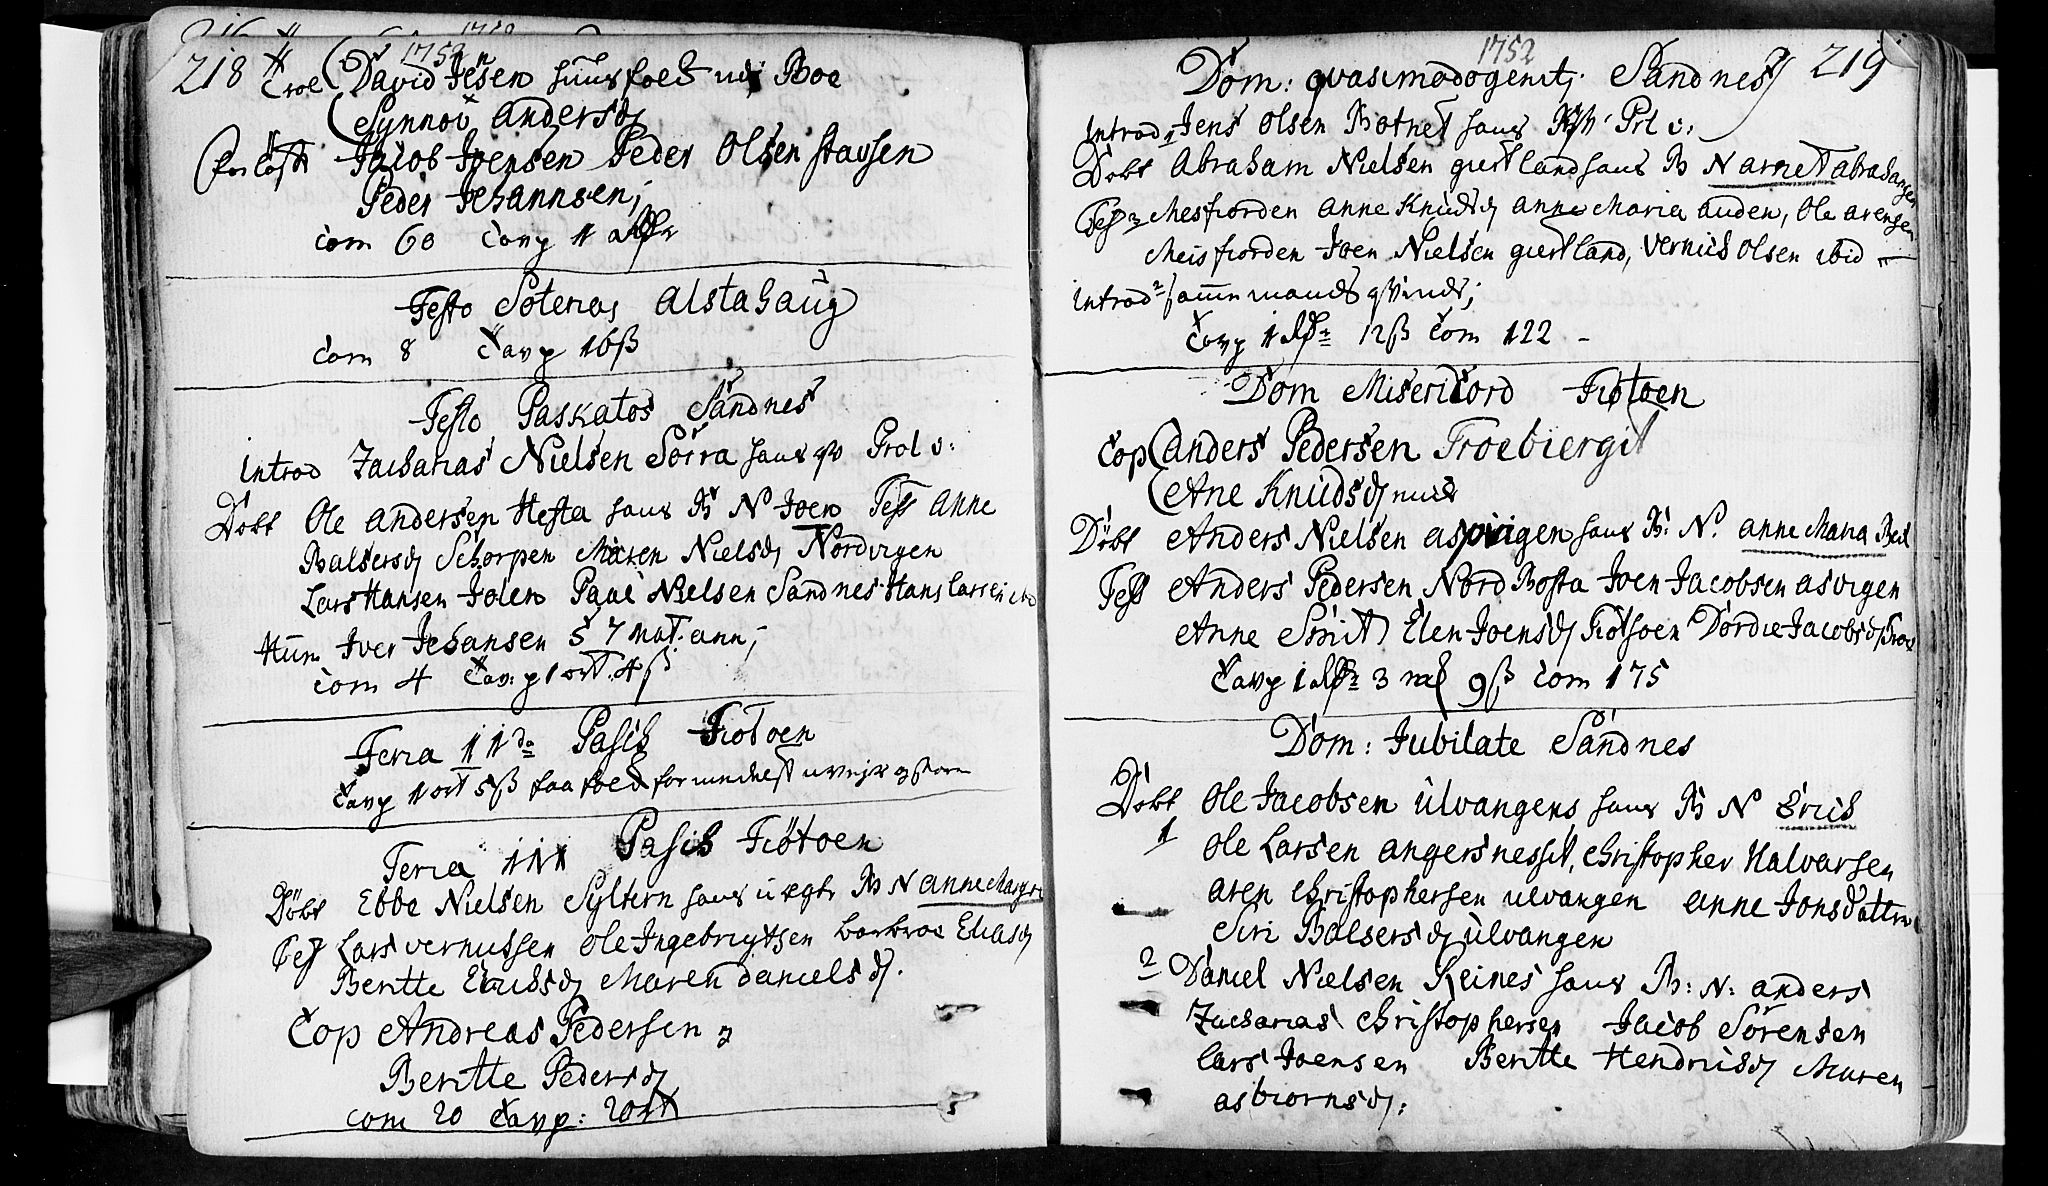 218 1752
Croe (David Jesen huusfoed Boe
(Synnoi Andersd
Jacob Joensen Peder Olsen stavsen
Peder Johannsen;
com 60 Cavp 1
Festo Soteras Alstahaug
Com 8 Cavp 16 β
Festo Paskatos Sandnes
Introd Zacharias Nielsen Sørra hans Prol v:
Døbt Ole Andersen Hesta hans B N Joen Tess Anne
Balsersd Schorpen Maren Nielsd Nordvigen
Lars Hansen Jolen Paul Nielsen Sandnes Hans larsen ibd
Hum Iver Johansen 57 nat. ann;
Com 4 Cavp 1 ort. 4 β
Feria 11da Pasch Tiøtoen
Cavp 1 ort 5 β
Feria 111 Pasch Tiøtoen
Døbt Ebbe Nielsen Syltern hans u ægte B N Anne Margre
Tess Lars vernussen Ole Ingebrigtsen barbroe Eliasd
Beritte Erichsd Maren danielsd.
Cop Andreas Pedersen
Beritte Pedersd
Com 20 Cavp: 2 ort
1752 219
Dom: qvasimodogenit; Sandnes
Introd 1 Jens Olsen Botnet hans Prl v:
Døbt Abraham Nielsen giertland hans B N Arnet Abrahamsen
Tess Meisfiorden Anne Knudsd Anne Maria Auden, Ole arensen
Meisfiorden Joen Nielsen giertland, Vernich Olsen ibid
Introd 2
Cavp 1 12 β Com 122 -
Dom Misericord Tiøtoen
Cop (Anders Pedersen Troebiergit
(Ane Knudsd
Døbt Anders Nielsen asvigen hans B: N. Anne Maria
Tess Anders Pedersen Nord Bosta Joen Jacobsen asvigen
Anne Smit Elen Joensd Tiøtoen Dordie Jacobsd
Cavp 1 3 9 β Com 175
Dom: Jubilate Sandnes
Døbt Ole Jacobsen Ulvangens hans B N Erich
1 Ole Larsen Angersnesset, Christopher Halvarsen
aren Christophersen ulvangen Anne Jonsdatter
Siri Balsersd Ulvangen
2 Daniel Nielsen Reines hans B: N: anders
Zacharias Christophersen Jacob Sørensen
lars Joensen Beritte Hendrichsd Maren
asbiornsd: